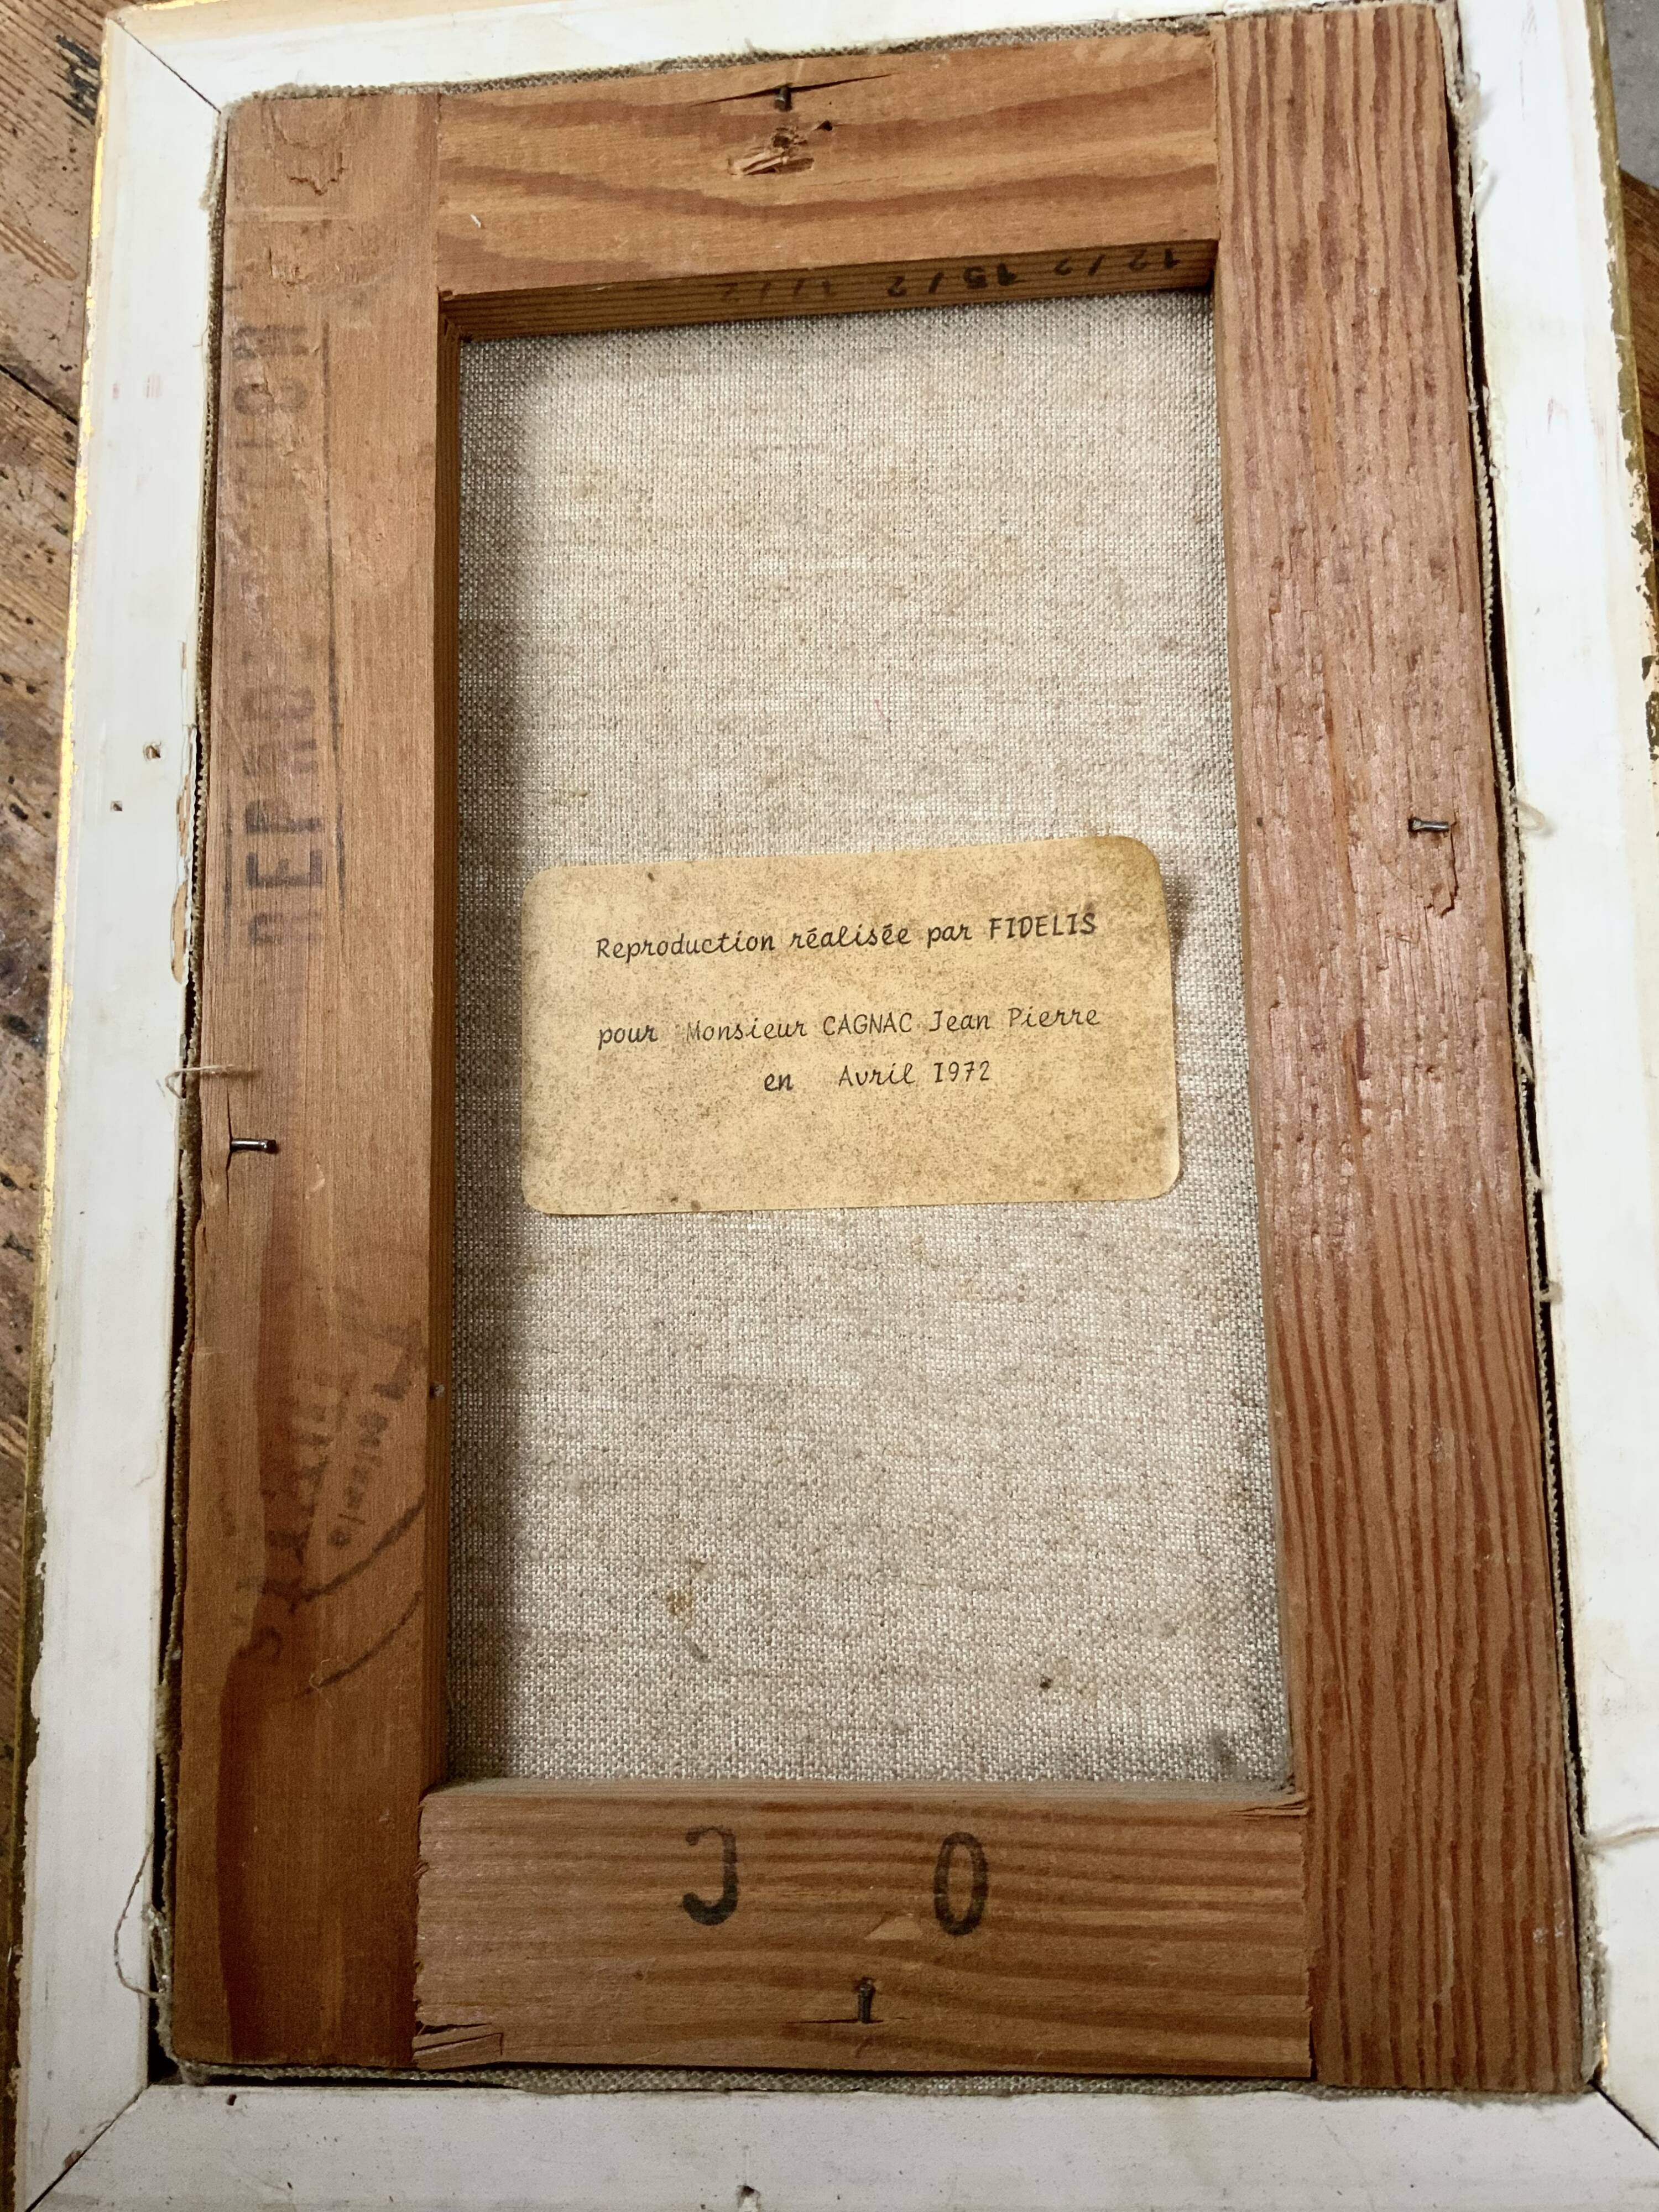 12/2 15/2
REPRODUCTION
Reproduction réalisée par FIDELIS
pour Monsieur CAGNAC Jean Pierre
en Avril I972
J O